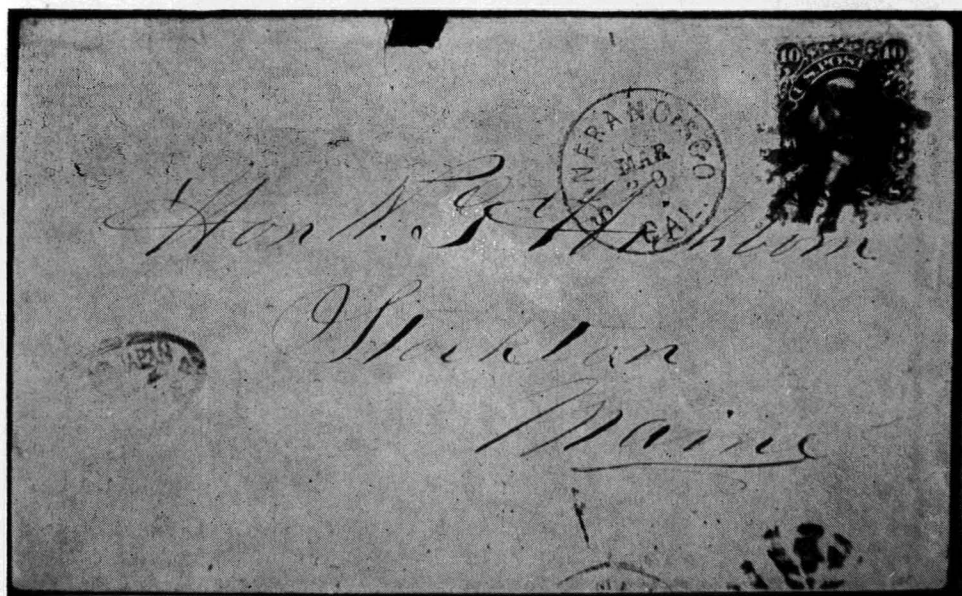 10 10
U.S. POST
SAN FRANCISCO
MAR
29
CAL.
Hon N. G. Hichborn
Stockton
Maine
APR